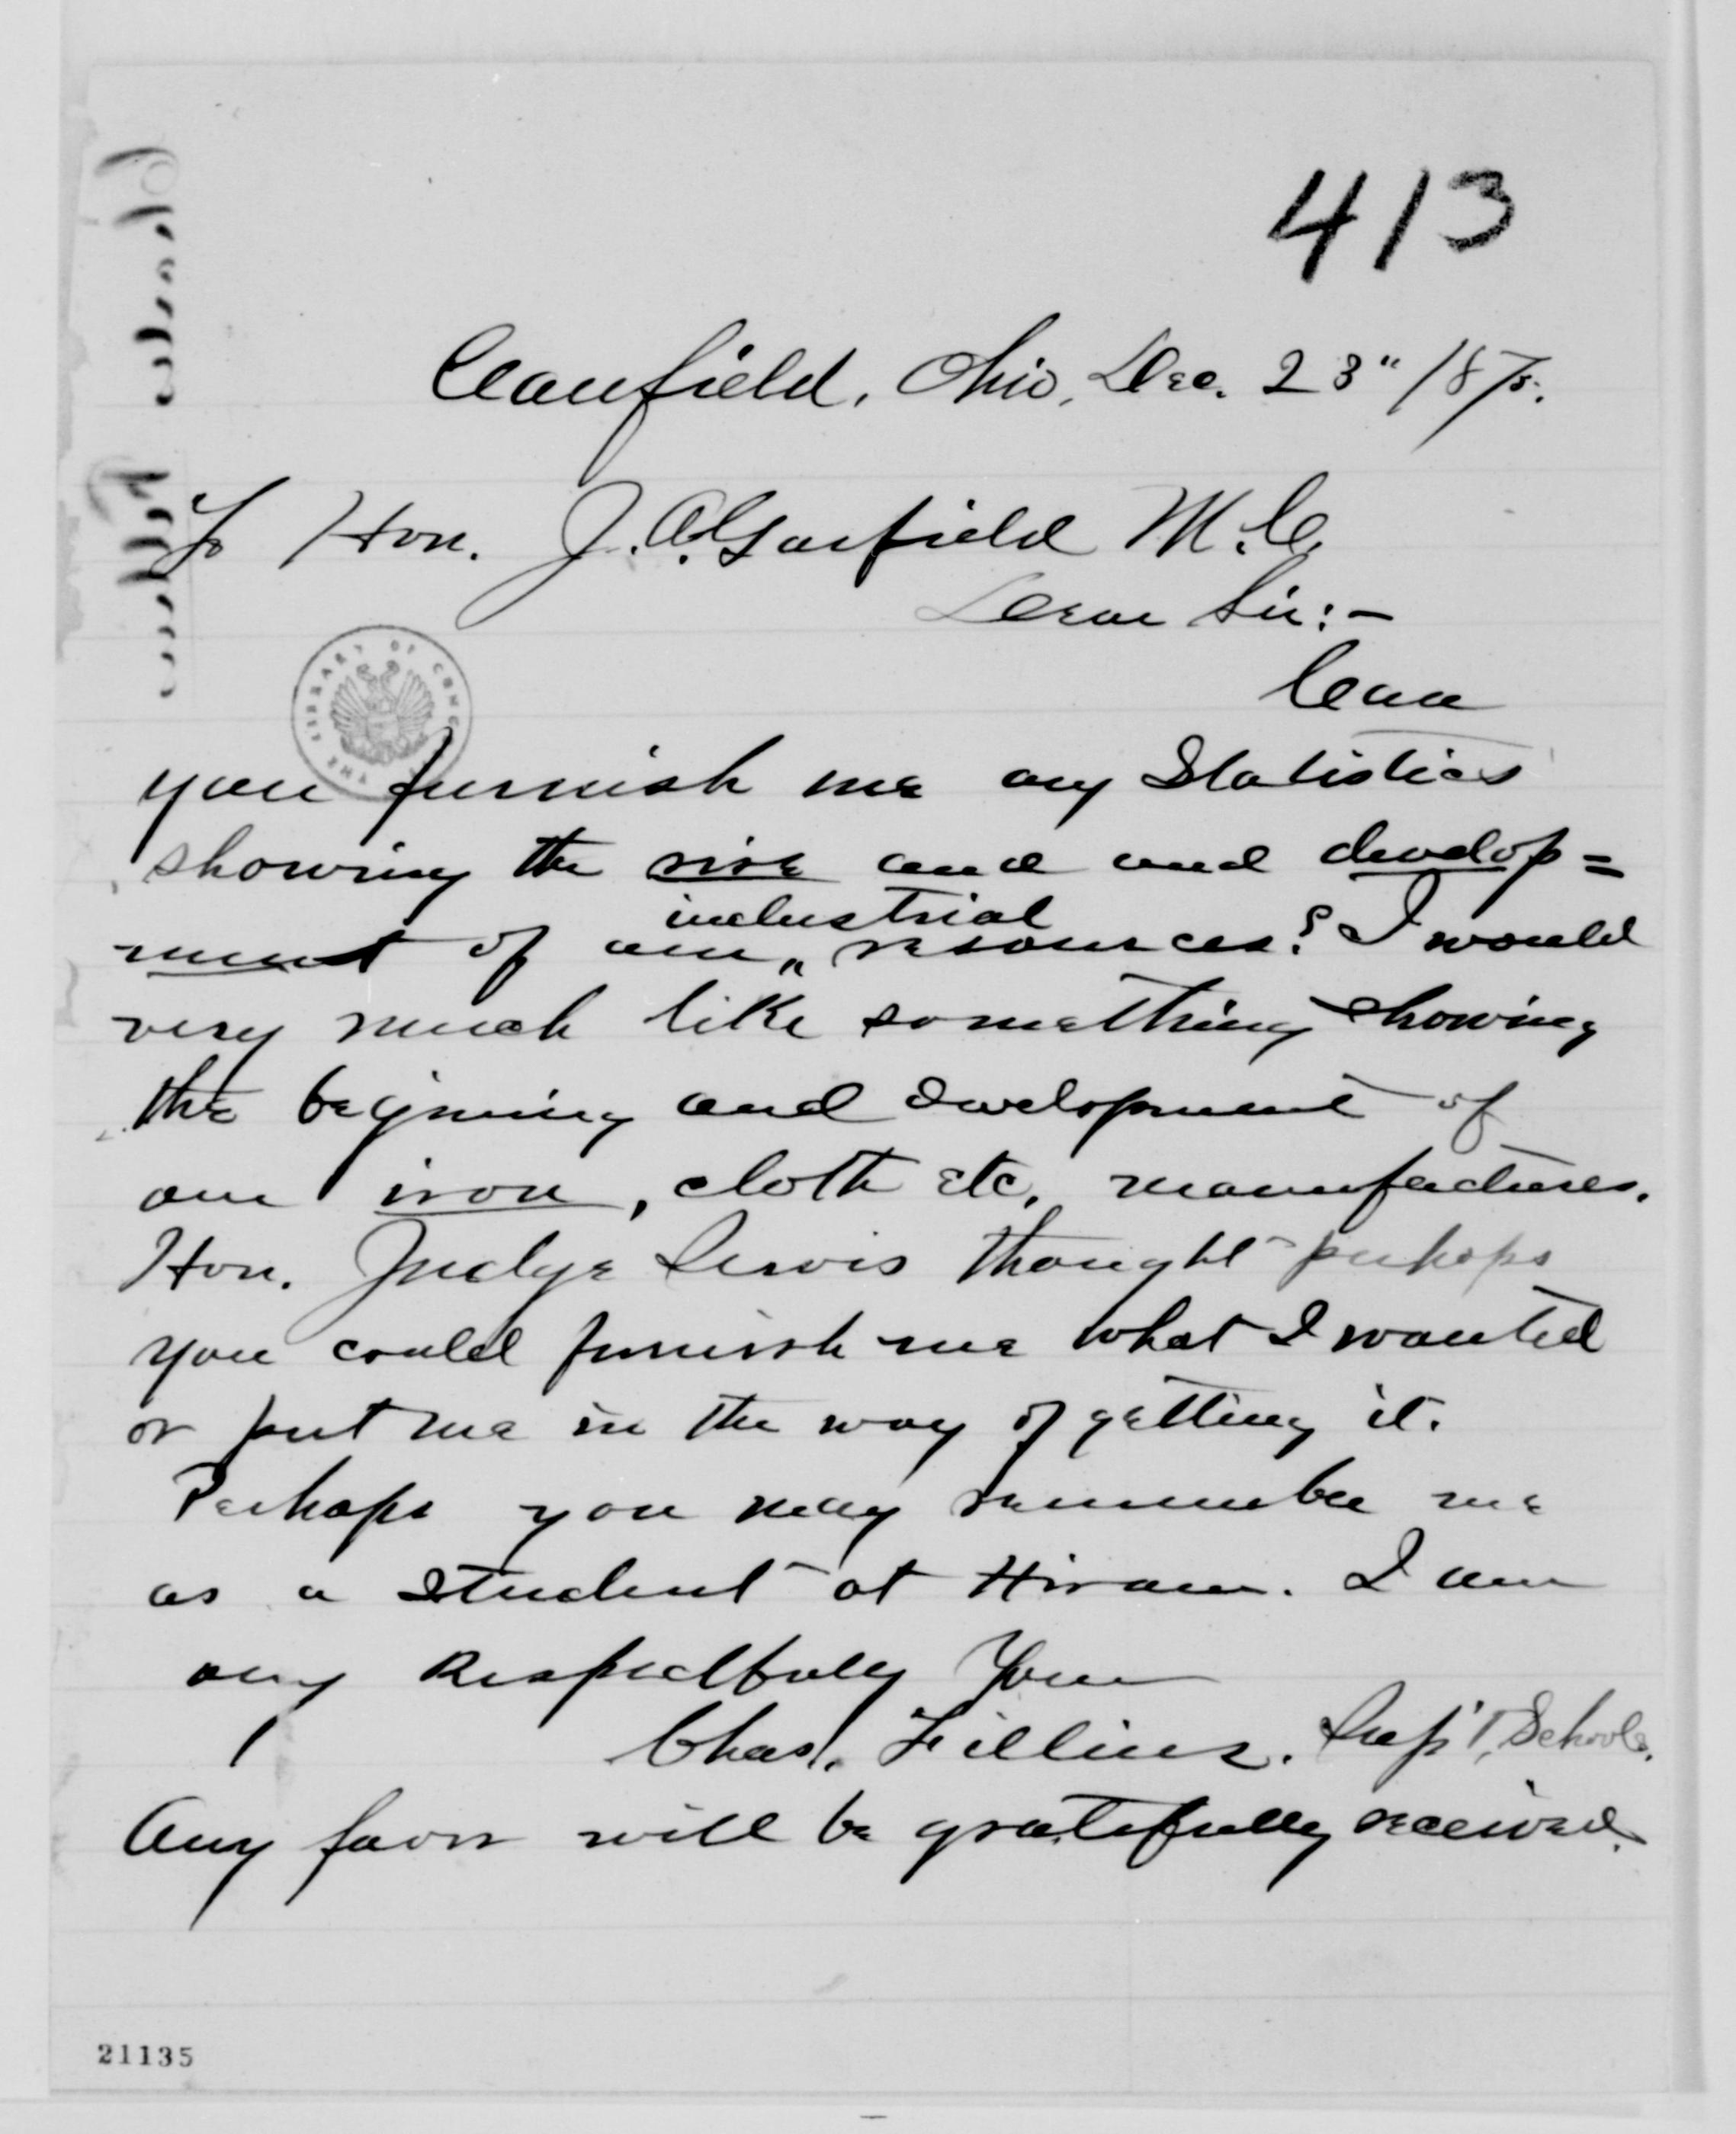 413
Canfield, Ohio, Dec. 23" 1875.
To Hon. J. A. Garfield M. C.
Dear Sir:-
Can
you furnish me any Statistics
showing the rise and and develop=
ment of our „ resources? I would
industrial
very much like something showing
the begining and development of
our iron, cloth etc. manufactures.
Hon. Judge Servis thought perhaps
you could furnish me what I wanted
or put me in the way of getting it.
Perhaps you may remember me
as a student at Hiram. I am
very Respectfully Yours
Chas. Fillius. Sup't, Schools.
Any favor will be gratefully received.
Charles Fillius
THE LIBRARY OF CONG
21135